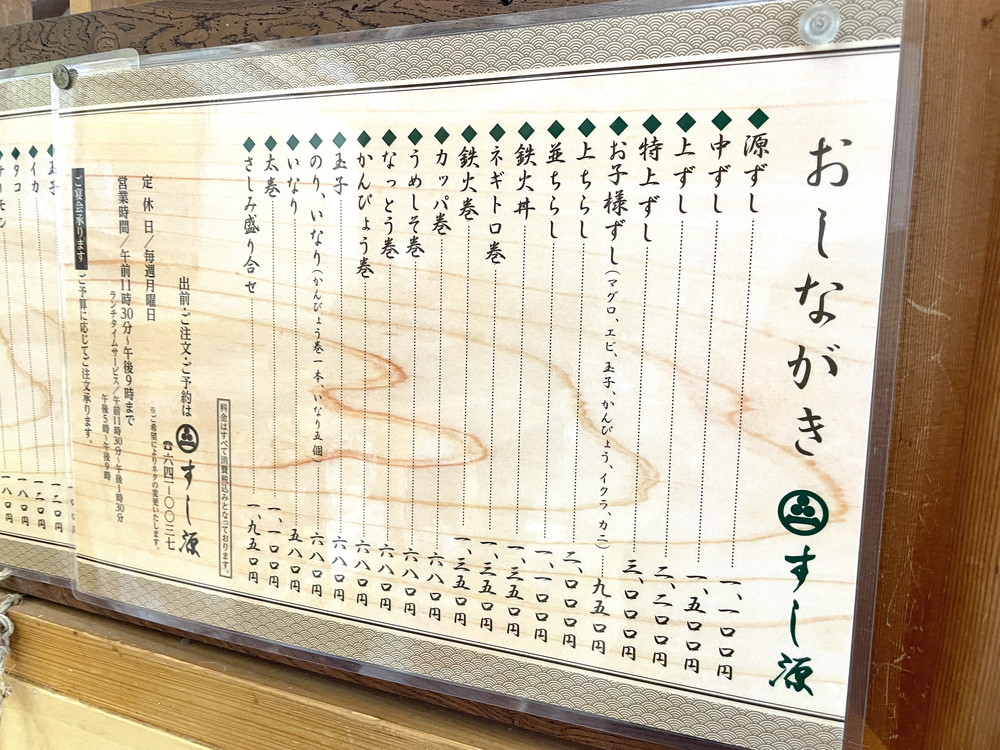 おしながき
すし源
源ずし 一、一〇〇円
中ずし 一、五〇〇円
上ずし 二、二〇〇円
特上ずし 三、〇〇〇円
お子様ずし(マグロ、エビ、玉子、かんぴょう、イクラ、カニ) 九五〇円
上ちらし 二、〇〇〇円
並ちらし 一、一〇〇円
鉄火丼 一、三五〇円
ネギトロ巻 一、三五〇円
鉄火巻 一、三五〇円
カッパ巻 六八〇円
うめしそ巻 六八〇円
なっとう巻 六八〇円
かんぴょう巻 六八〇円
玉子 六八〇円
のり、いなり(かんぴょう巻一本、いなり五個) 六八〇円
いなり 五八〇円
太巻 一、一〇〇円
さしみ盛り合せ 一、九五〇円
料金はすべて消費税込みとなっております。
出前・ご注文・ご予約は すし源
☎六四一-〇〇三七
※ご希望によりネタの変更いたします。
定休日/毎週月曜日
営業時間/午前11時30分~午後9時まで
ランチタイムサービス/午前11時30分~午後1時30分
午後5時~午後9時
ご宴会承ります ご予算に応じてご注文承ります。
玉子 一二〇円
イカ 一二〇円
タコ 一八〇円
サーモン 一八〇円